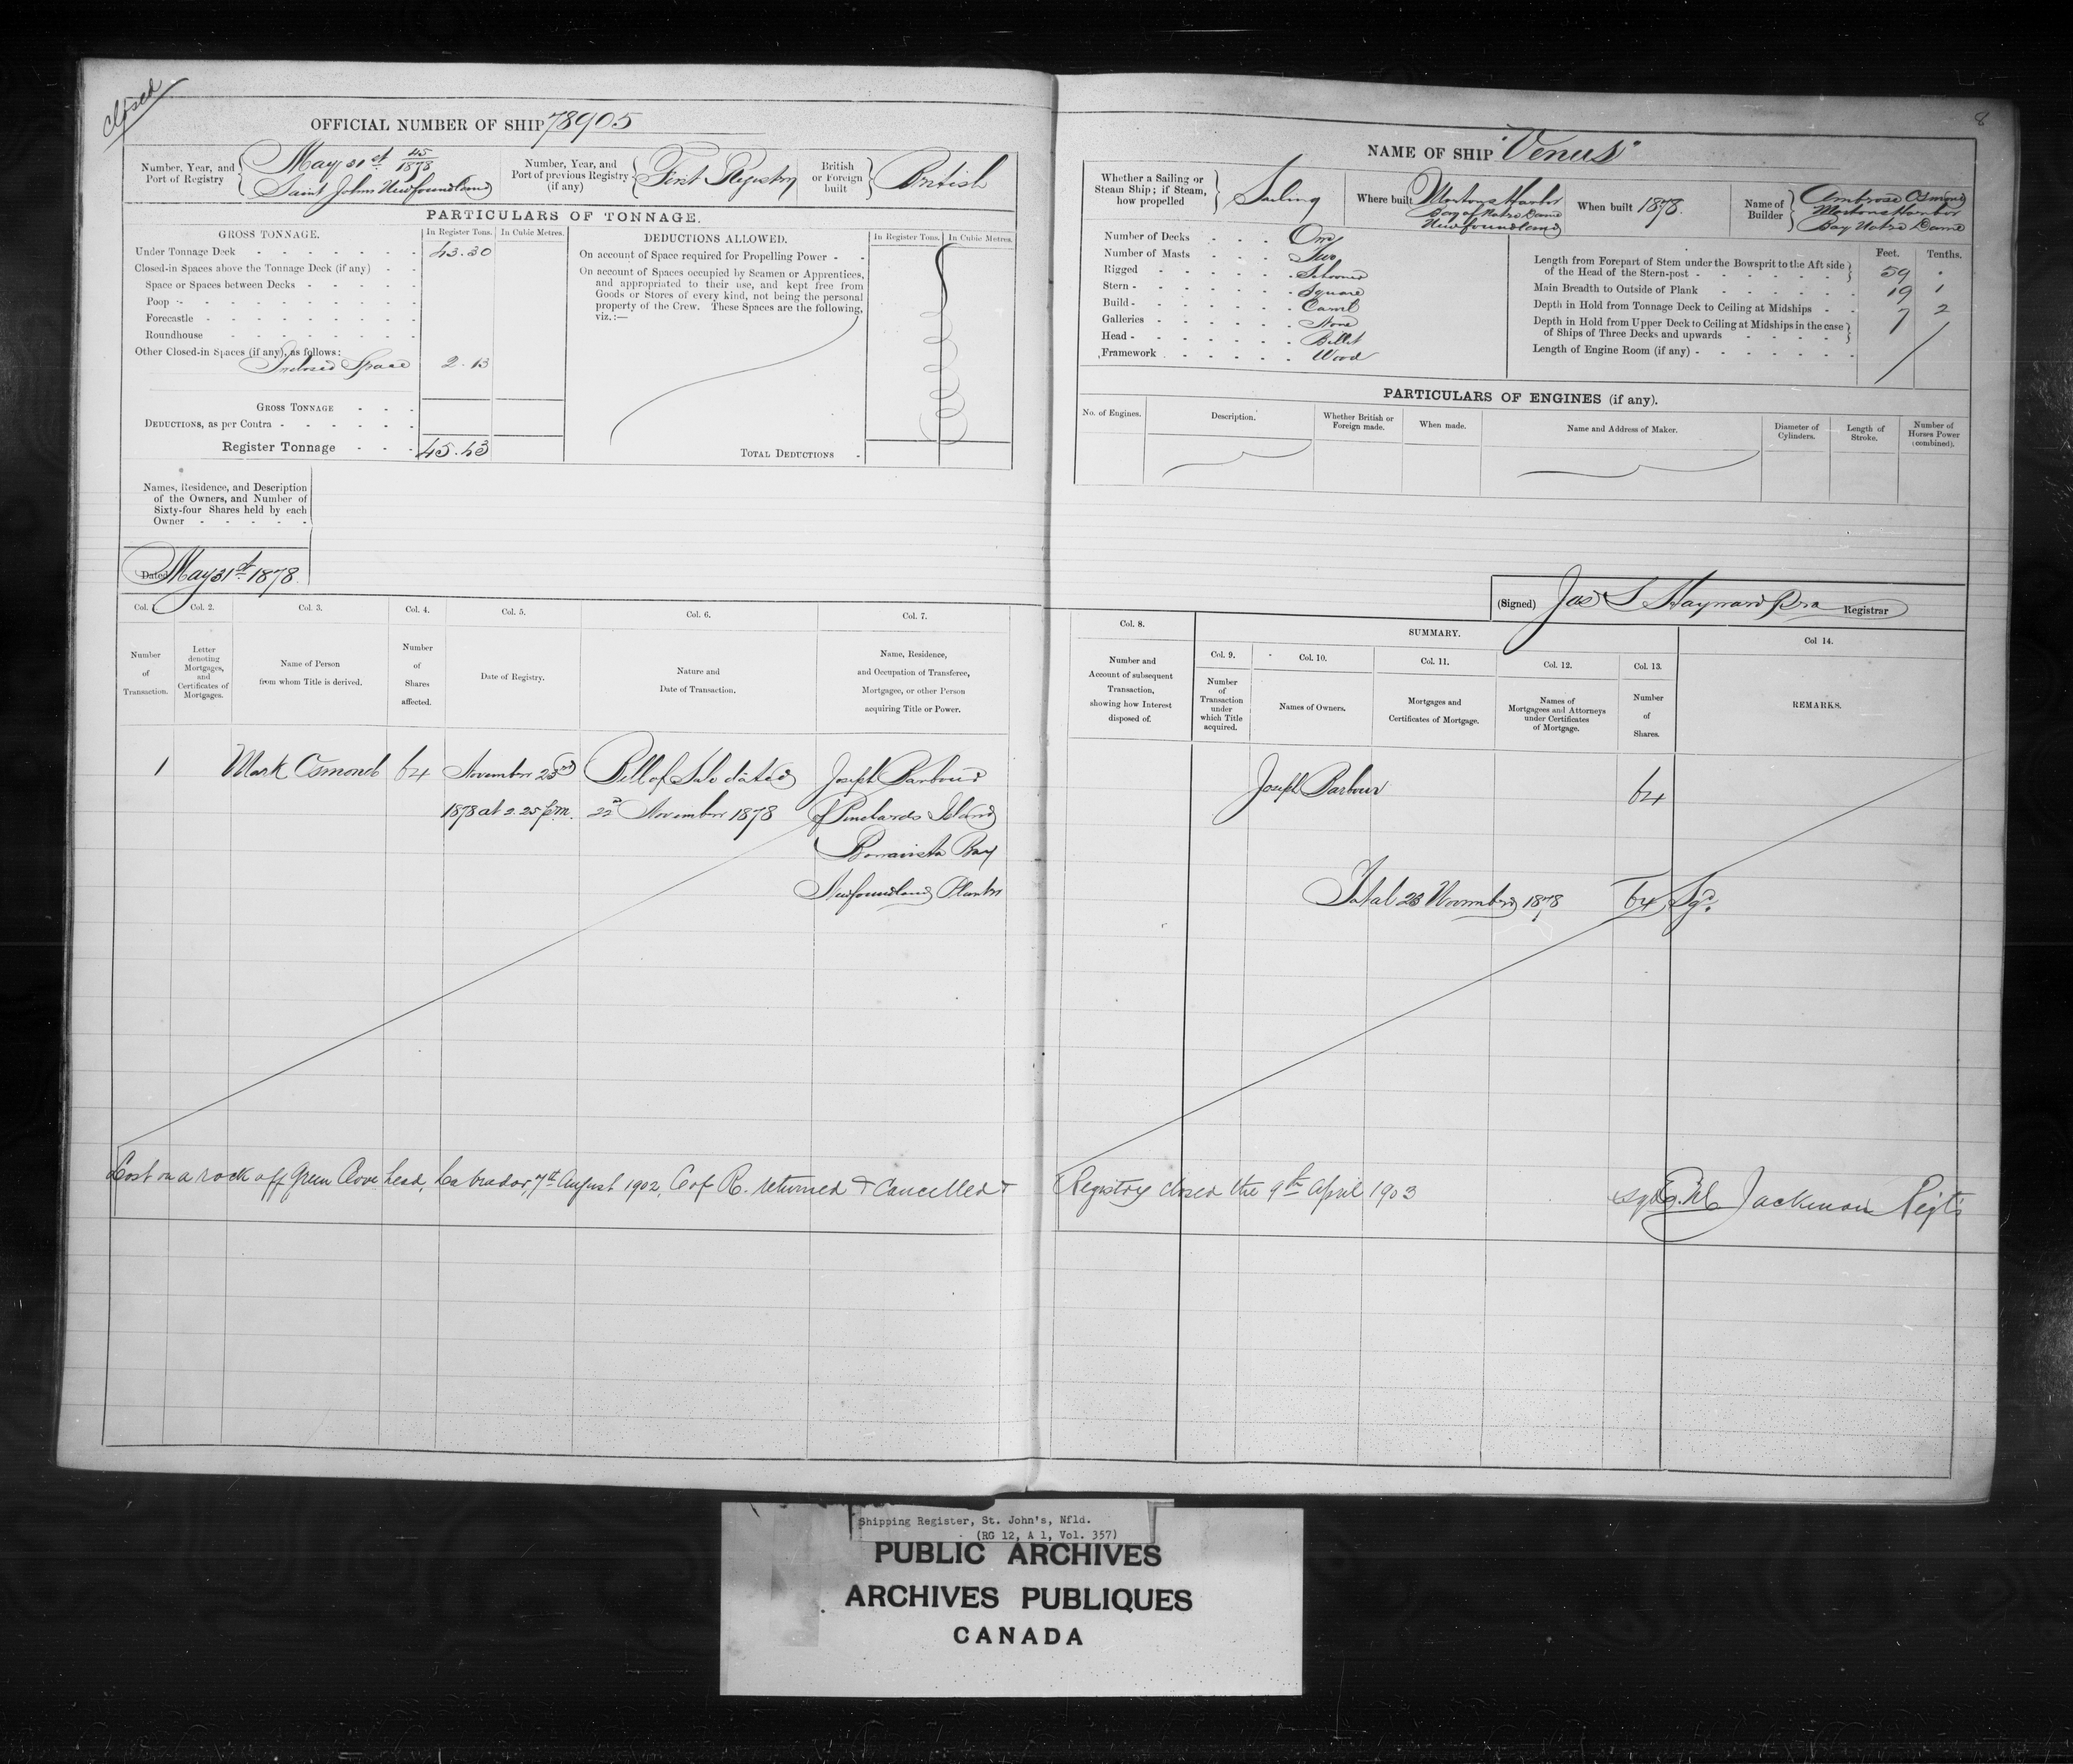 closed
8
OFFICIAL NUMBER OF SHIP 78905
Number, Year, and Port of Registry
May 31st 45/1878
Saint Johns Newfoundland
Number, Year, and Port of previous Registry (if any)
First Registry
British or Foreign built
British
PARTICULARS OF TONNAGE.
GROSS TONNAGE.
In Register Tons.
In Cubic Metres.
Under Tonnage Deck 43.30
Closed-in Spaces above the Tonnage Deck (if any)
Space or Spaces between Decks
Poop
Forecastle
Roundhouse
Other Closed-in Spaces (if any), as follows:
Inclosed Space 2.13
GROSS TONNAGE
DEDUCTIONS, as per Contra
Register Tonnage 45.43
DEDUCTIONS ALLOWED.
In Register Tons.
In Cubic Metres.
On account of Space required for Propelling Power
On account of Spaces occupied by Seamen or Apprentices,
and appropriated to their use, and kept free from
Goods or Stores of every kind, not being the personal
property of the Crew. These Spaces are the following,
viz.:—
TOTAL DEDUCTIONS
Names, Residence, and Description
of the Owners, and Number of
Sixty-four Shares held by each
Owner
Dated May 31st 1878.
Col. 1
Col. 2.
Col. 3.
Col. 4.
Col. 5.
Col. 6.
Col. 7.
Number of Transaction.
Letter denoting Mortgages, and Certificates of Mortgages.
Name of Person from whom Title is derived.
Number of Shares affected.
Date of Registry.
Nature and Date of Transaction.
Name, Residence, and Occupation of Transferee, Mortgagee, or other Person acquiring Title or Power.
1 Mark Osmond 64 November 23rd Bill of Sale dated Joseph Barbour
1878 at 2.25 p.m. 22nd November 1878 of Pinchards Island
Bonavista Bay
Newfoundland Planter
Lost on a rock off Green Cove head, Labrador, 7th August 1902, C of R. returned & Cancelled &
NAME OF SHIP "Venus"
Whether a Sailing or Steam Ship; if Steam, how propelled
Sailing
Where built
Mortons Harbor
Bay of Notre Dame
Newfoundland
When built 1878.
Name of Builder
Ambrose Osmond
Mortons Harbor
Bay Notre Dame
Number of Decks One
Number of Masts Two
Rigged Schooner
Stern Square
Build Carvel
Galleries None
Head Billet
Framework Wood
Feet. Tenths.
Length from Forepart of Stem under the Bowsprit to the Aft side of the Head of the Stern-post 59 .
Main Breadth to Outside of Plank 19 1
Depth in Hold from Tonnage Deck to Ceiling at Midships 7 2
Depth in Hold from Upper Deck to Ceiling at Midships in the case of Ships of Three Decks and upwards
Length of Engine Room (if any)
PARTICULARS OF ENGINES (if any).
No. of Engines.
Description.
Whether British or Foreign made.
When made.
Name and Address of Maker.
Diameter of Cylinders.
Length of Stroke.
Number of Horses Power (combined).
(Signed) Jas S Hayward Registrar
Col. 8.
SUMMARY.
Col. 9.
Col. 10.
Col. 11.
Col. 12.
Col. 13.
Col 14.
Number and Account of subsequent Transaction, showing how Interest disposed of.
Number of Transaction under which Title acquired.
Names of Owners.
Mortgages and Certificates of Mortgage.
Names of Mortgagees and Attorneys under Certificates of Mortgage.
Number of Shares.
REMARKS.
Joseph Barbour 64
Total 23 November 1878 64 Sgd.
Registry closed the 9th April 1903
Jackman
Shipping Register, St. John's, Nfld.
(RG 12, A 1, Vol. 357)
PUBLIC ARCHIVES
ARCHIVES PUBLIQUES
CANADA